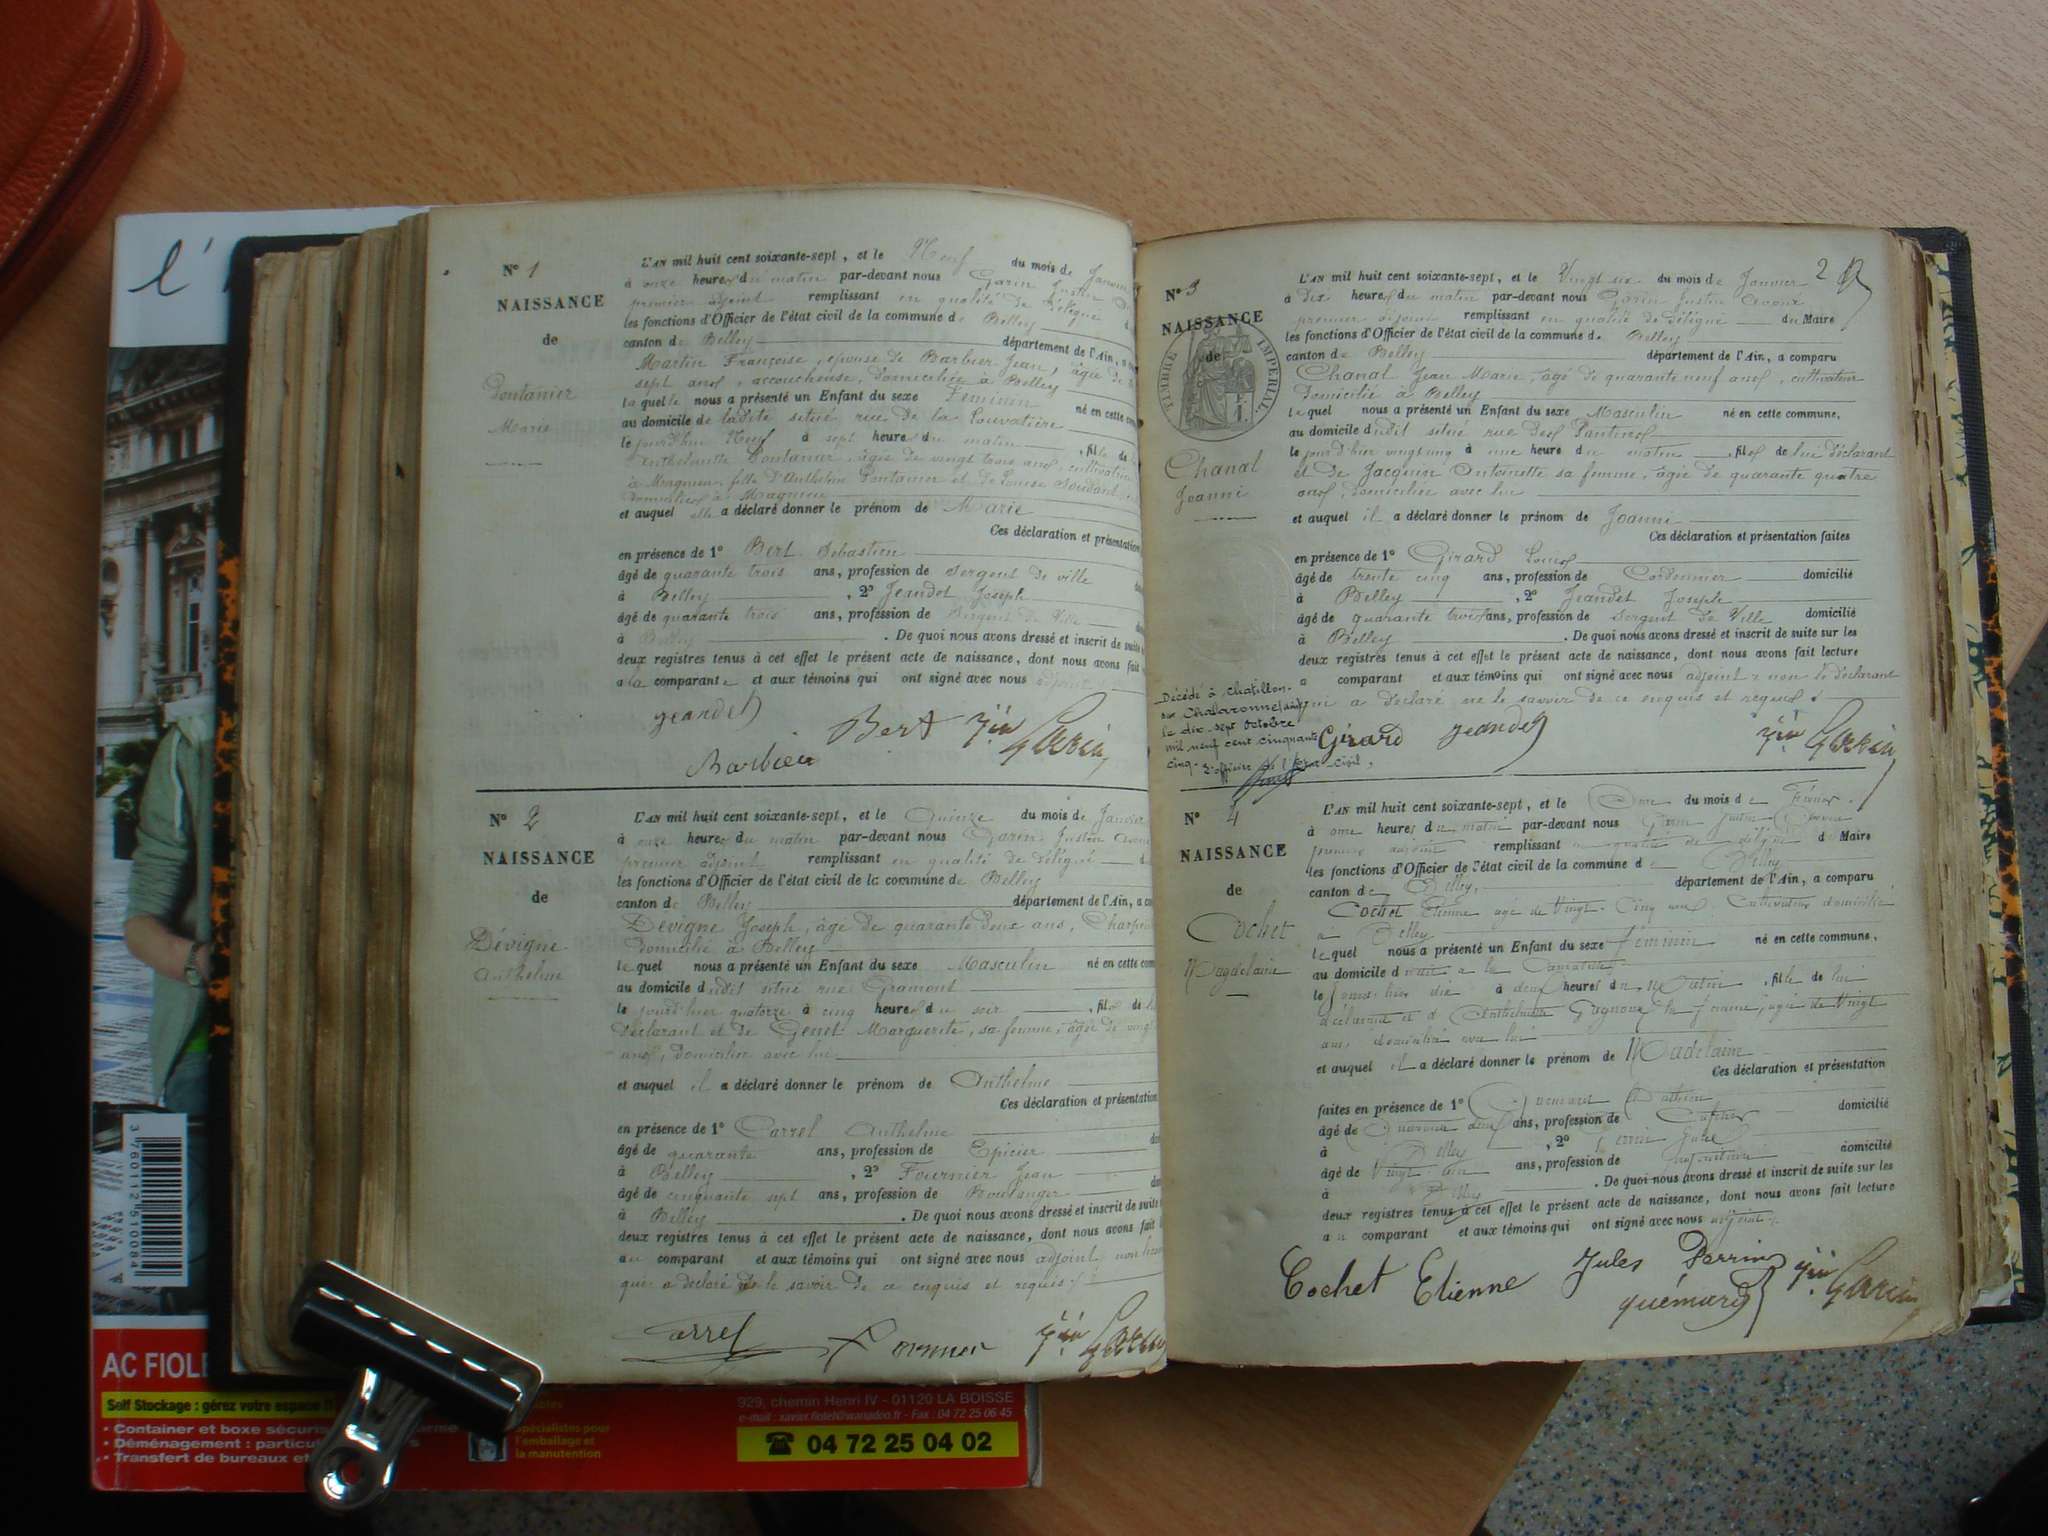 l'
N° 1
NAISSANCE
de
Pontanier
Marie
L'AN mil huit cent soixante-sept, et le Neuf du mois de Janvier
à onze heures du matin par-devant nous Garin Justin
premier adjoint remplissant en qualité de délégué
les fonctions d'Officier de l'état civil de la commune de Belley
canton de Belley département de l'Ain, a
Martin Françoise, épouse de Barbier Jean, âgée de
sept ans, accoucheuse, domiciliée à Belley
laquelle nous a présenté un Enfant du sexe Féminin né en cette
au domicile de ladite situé rue de la Louvatière
le jourd'hui Neuf à sept heures du matin, fille de
Anthelmette Pontanier, âgée de vingt trois ans, cultivatrice
à Magnieu, fille d'Anthelme Pontanier et de Louise
domiciliés à Magnieu
et auquel elle a déclaré donner le prénom de Marie
Ces déclaration et présentation
en présence de 1° Bert Sébastien
âgé de quarante trois ans, profession de sergent de ville
à Belley, 2° Jeandet Joseph
âgé de quarante trois ans, profession de Sergent de Ville
à Belley. De quoi nous avons dressé et inscrit de suite
deux registres tenus à cet effet le présent acte de naissance, dont nous avons fait
a la comparante et aux témoins qui ont signé avec nous adjoint
jeandet
Bert
Garin
Barbier
N° 2
NAISSANCE
de
Dévigne
Anthelme
L'AN mil huit cent soixante-sept, et le Quinze du mois de Janvier
à onze heures du matin par-devant nous Garin Justin
premier adjoint remplissant en qualité de délégué
les fonctions d'Officier de l'état civil de la commune de Belley
canton de Belley département de l'Ain, a
Dévigne Joseph, âgé de quarante deux ans,
domicilié à Belley
lequel nous a présenté un Enfant du sexe Masculin né en cette
au domicile dudit situé rue Gramont
le jourd'hier quatorze à cinq heures du soir, fils de
déclarant et de Genet Marguerite, sa femme, âgée de vingt
ans, domiciliée avec lui
et auquel il a déclaré donner le prénom de Anthelme
Ces déclaration et présentation
en présence de 1° Carrel Anthelme
âgé de quarante ans, profession de Epicier
à Belley, 2° Fournier Jean
âgé de cinquante sept ans, profession de Boulanger
à Belley. De quoi nous avons dressé et inscrit de suite
deux registres tenus à cet effet le présent acte de naissance, dont nous avons fait
au comparant et aux témoins qui ont signé avec nous adjoint,
qui a déclaré ne le savoir de ce enquis et requis
Carrel
Fournier
Garin
2
N° 3
NAISSANCE
de
TIMBRE IMPÉRIAL
Chanal
Joanni
L'AN mil huit cent soixante-sept, et le Vingt six du mois de Janvier
à dix heures du matin par-devant nous Garin Justin
premier adjoint remplissant en qualité de délégué du Maire
les fonctions d'Officier de l'état civil de la commune de Belley
canton de Belley département de l'Ain, a comparu
Chanal Jean Marie, âgé de quarante neuf ans, cultivateur
domicilié à Belley
lequel nous a présenté un Enfant du sexe Masculin né en cette commune,
au domicile dudit situé rue des
le jourd'hier vingt cinq à une heure du matin, fils de lui déclarant
et de Jacquin Antoinette sa femme, âgée de quarante quatre
ans, domiciliée avec lui
et auquel il a déclaré donner le prénom de Joanni
Ces déclaration et présentation faites
en présence de 1° Girard Louis
âgé de trente cinq ans, profession de Cordonnier domicilié
à Belley, 2° Jeandet Joseph
âgé de quarante trois ans, profession de Sergent de Ville domicilié
à Belley. De quoi nous avons dressé et inscrit de suite sur les
deux registres tenus à cet effet le présent acte de naissance, dont nous avons fait lecture
a comparant et aux témoins qui ont signé avec nous adjoint, non le déclarant
qui a déclaré ne le savoir de ce enquis et requis.
Décédé à Chatillon-
sur Chalaronne (Ain)
le dix-sept octobre
mil neuf cent cinquante
cinq. L'officier de l'Etat-Civil,
Girard
jeandet
Garin
N° 4
NAISSANCE
de
Cochet
Magdelaine
L'AN mil huit cent soixante-sept, et le Onze du mois de Février
à onze heures du matin par-devant nous Garin Justin
premier adjoint remplissant en qualité de délégué du Maire
les fonctions d'Officier de l'état civil de la commune de Belley
canton de Belley, département de l'Ain, a comparu
Cochet Etienne agé de Vingt-Cinq ans Cultivateur domicilié
à Belley
lequel nous a présenté un Enfant du sexe féminin né en cette commune,
au domicile dudit à la
le jourd'hier dix à deux heures du Matin, fille de lui
déclarant et d'Anthelmette sa femme, agée de Vingt
ans, domiciliée avec lui
et auquel il a déclaré donner le prénom de Madelaine
Ces déclaration et présentation
faites en présence de 1°
âgé de Quarante deux ans, profession de domicilié
à Belley, 2° Perrin Jules
âgé de Vingt ans, profession de domicilié
à Belley. De quoi nous avons dressé et inscrit de suite sur les
deux registres tenus à cet effet le présent acte de naissance, dont nous avons fait lecture
au comparant et aux témoins qui ont signé avec nous adjoint.
Cochet Etienne
Jules Perrin
quémard
Garin
3 760112 510084
AC FIOLE
Self Stockage : gérez votre espace
• Container et boxe sécuris
• Déménagement : particul
• Transfert de bureaux et
Spécialistes pour
l'emballage et
la manutention
929, chemin Henri IV - 01120 LA BOISSE
e-mail : xavier.fiolet@wanadoo.fr - Fax : 04 72 25 06 45
04 72 25 04 02